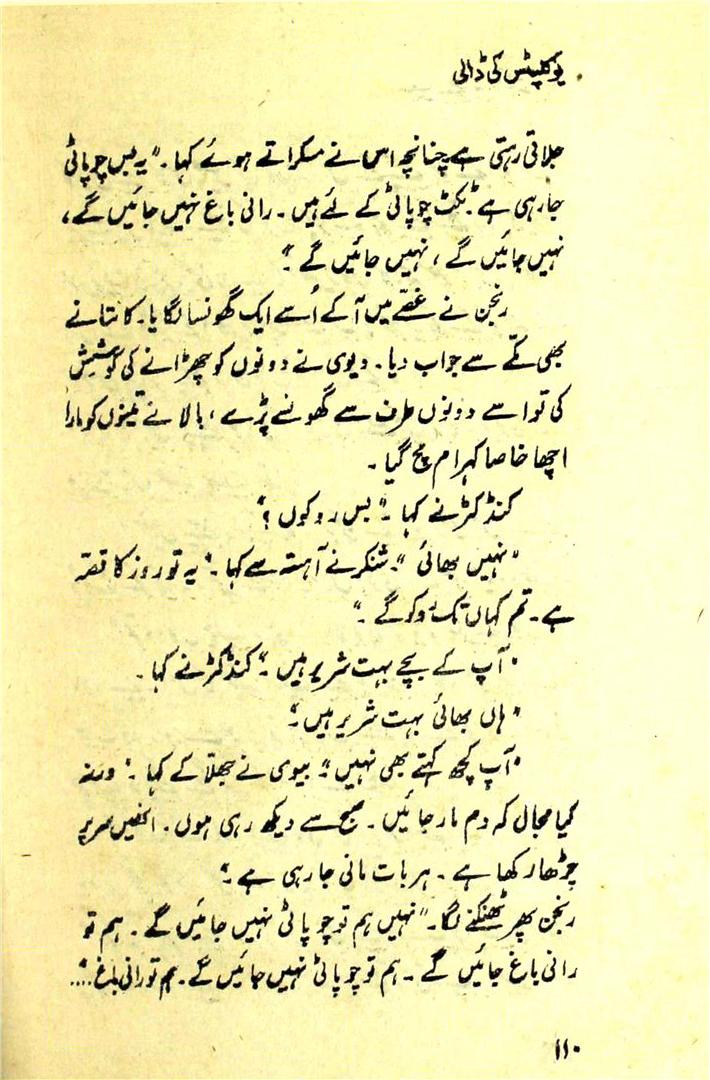 یوکلپٹس کی ڈالی
جلاتی رہتی ہے چنانچہ اس نے مسکراتے ہوئے کہا۔ "یہ بس چوپاٹی
جا رہی ہے ٹکٹ چوپاٹی کے لئے ہیں۔ رانی باغ نہیں جائیں گے،
نہیں جائیں گے، نہیں جائیں گے۔"
رنجن نے غصے میں آ کے اُسے ایک گھونسا لگایا۔ کانتا نے
بھی مکّے سے جواب دیا۔ دیوی نے دونوں کو چھڑانے کی کوشش
کی تو اسے دونوں طرف سے گھونسے پڑے، بالا نے تینوں کو مارا
اچھا خاصا کہرام مچ گیا۔
کنڈکٹر نے کہا۔ "بس روکوں؟"
"نہیں بھائی"۔ شنکر نے آہستہ سے کہا۔ "یہ تو روز کا قصّہ
ہے۔ تم کہاں تک روکو گے۔"
"آپ کے بچے بہت شریر ہیں۔" کنڈکٹر نے کہا۔
"ہاں بھائی بہت شریر ہیں۔"
"آپ کچھ کہتے بھی نہیں۔" بیوی نے جھلّا کے کہا۔ "ورنہ
کیا مجال کہ دم مار جائیں۔ صبح سے دیکھ رہی ہوں۔ انھیں سر پر
چڑھا رکھا ہے۔ ہر بات مانی جا رہی ہے۔"
رنجن پھر ٹھنکنے لگا۔ "نہیں ہم تو چوپاٹی نہیں جائیں گے۔ ہم تو
رانی باغ جائیں گے۔ ہم تو چوپاٹی نہیں جائیں گے۔ ہم تو رانی باغ....."
۱۱۰